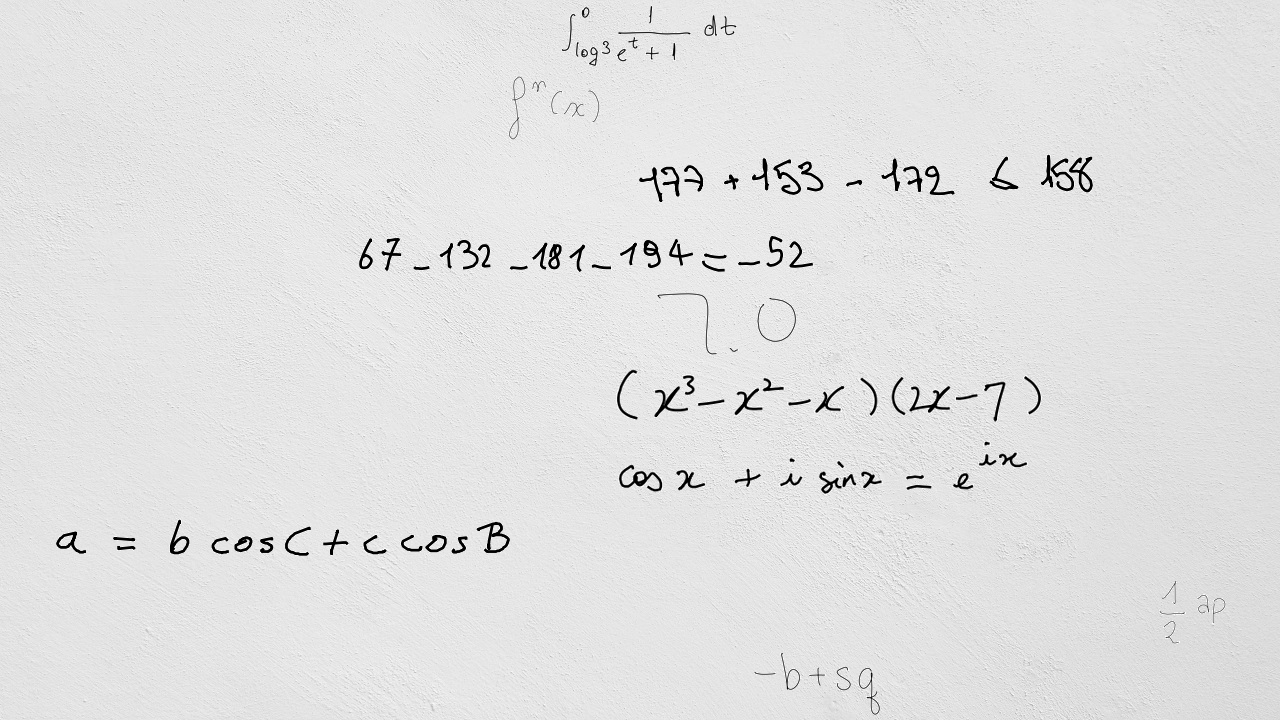 ∫_{log3}^{0} \frac{1}{e^t + 1} dt
f^n(x)
177 + 153 - 172 ≤ 158
67 - 132 - 181 - 194 = -52
7.0
(x^3 - x^2 - x)(2x - 7)
cos x + i sin x = e^{ix}
a = b cos C + c cos B
\frac{1}{2} ap
-b + sq